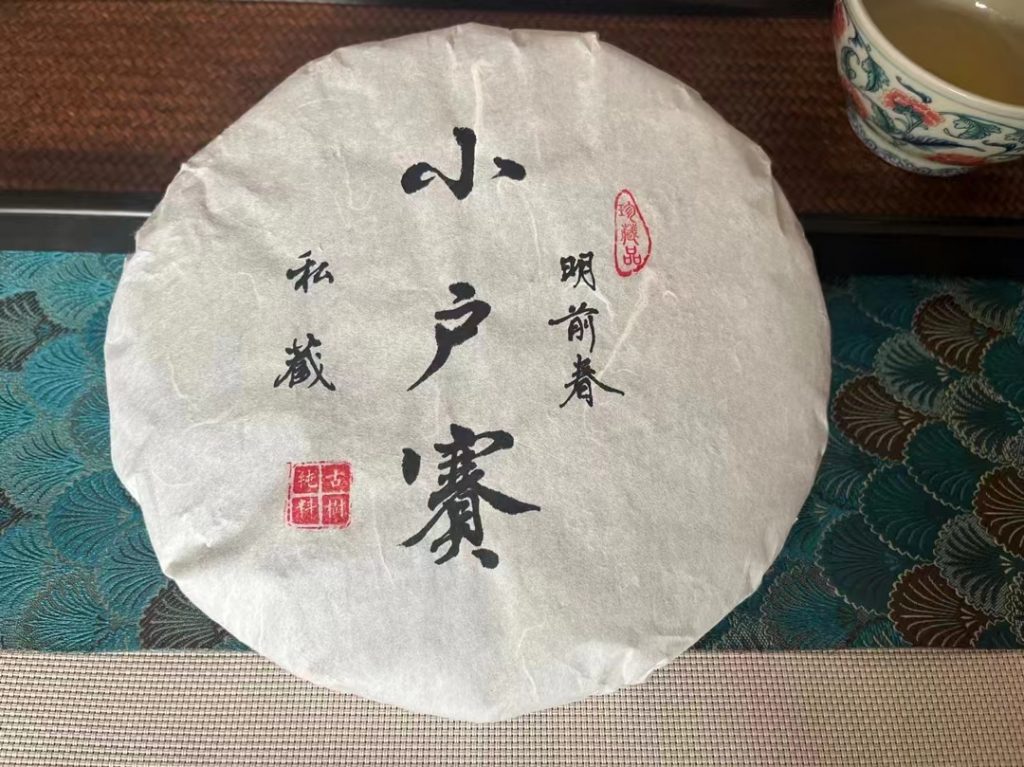 珍藏品
明前春
小户赛
私藏
古树
纯料